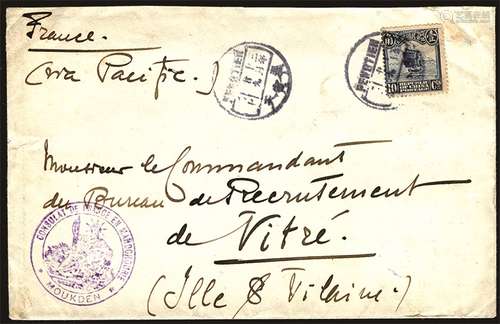 France.
(via Pacific.)
Monsieur le Commandant
du Bureau de Recrutement
de Vitré.
(Ille & Vilaine.)
CONSULAT DE FRANCE EN MANDCHOURIE
* MOUKDEN *
10
10